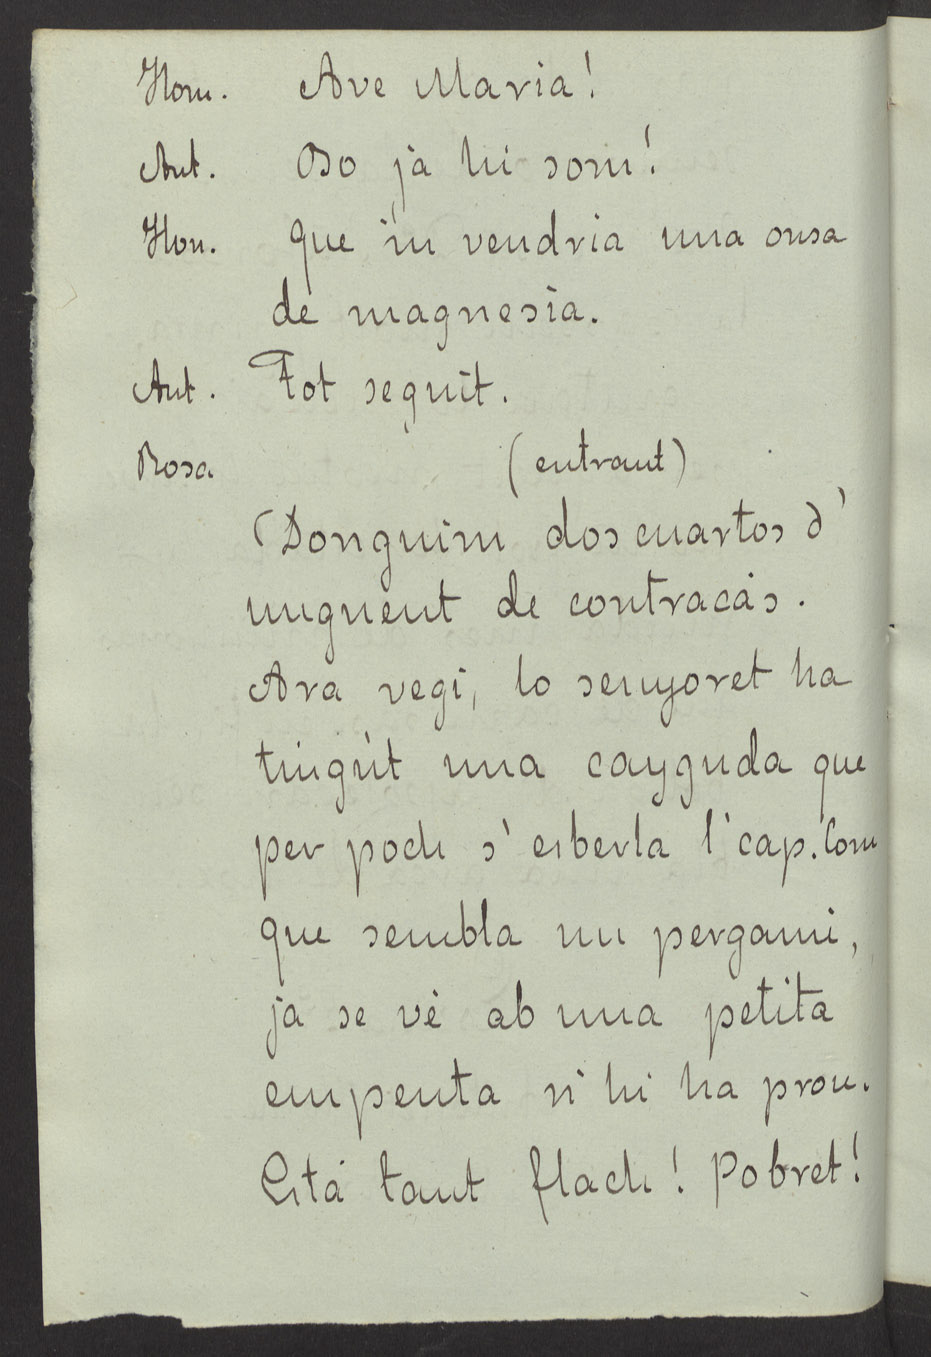 Hom. Ave Maria!
Ant. Oso ja hi som!
Hom. Que 'm vendria una onsa
de magnesia.
Ant. Tot seguit.
Rosa (entrant)
(Donguim dos cuartos d'
unguent de contracás.
Ara vegi, lo senyoret ha
tingut una cayguda que
per poch s' esberla l' cap. Com
que sembla un pergami,
ja se vé ab una petita
empenta n' hi ha prou.
Està tant flach! Pobret!